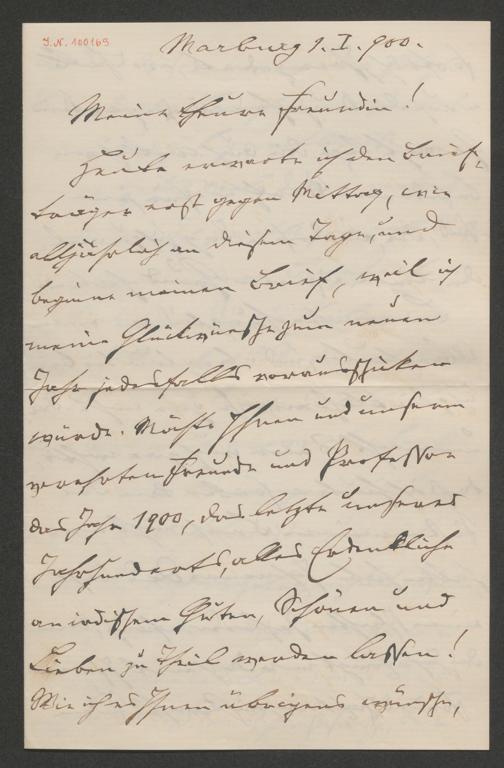 I.N. 100169
Marburg 1. I. 900.
Meine theure Freundin!
Heute erwarte ich den Brief-
träger erst gegen Mittag, wie
alljährlich an diesem Tage, und
beginne meinen Brief, weil ich
meine Glückwünsche zum neuen
Jahr jedesfalls vorausschicken
würde. Möchte Ihnen und unserm
verehrten Freunde und Professor
das Jahr 1900, das letzte unseres
Jahrhunderts, alles Erdenkliche
an irdischem Guten, Schönen und
Lieben zu Theil werden lassen!
Wie ich es Ihnen übrigens wünsche,